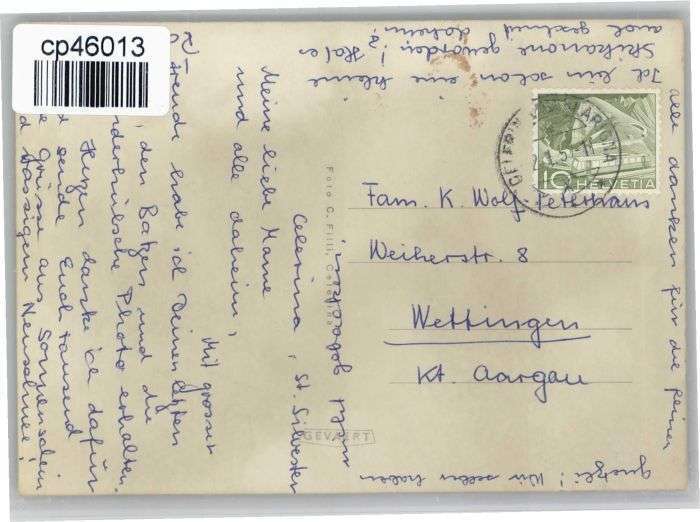 cp46013
Celerina, St. Silvester
Meine liebe Mame
und alle daheim,
Mit grosser
Freude habe ich Deinen letzten
den Batzen und die
Photo erhalten.
Herzen danke ich dafür
sende Euch tausend
Grüsse aus Sonnenschein
Neuschnee!
Ich bin schon eine kleine
Skikanone geworden! Hat es
auch geschneit daheim?
alle danken für die feinen
guetzli! Wir selber haben
Foto C. Filli, Celerina
GEVAERT
HELVETIA
10
Fam. K. Wolf-Peterhans
Weiherstr. 8
Wettingen
Kt. Aargau